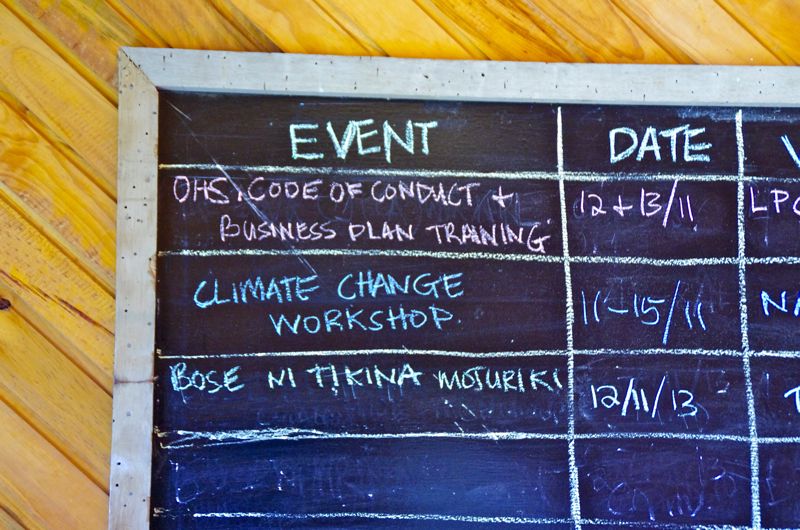 EVENT DATE
OHS, CODE OF CONDUCT +
BUSINESS PLAN TRAINING
12 + 13/11
LPC
CLIMATE CHANGE
WORKSHOP.
11-15/11
NA
BOSE NI TIKINA MOTURIKI
12/11/13
T